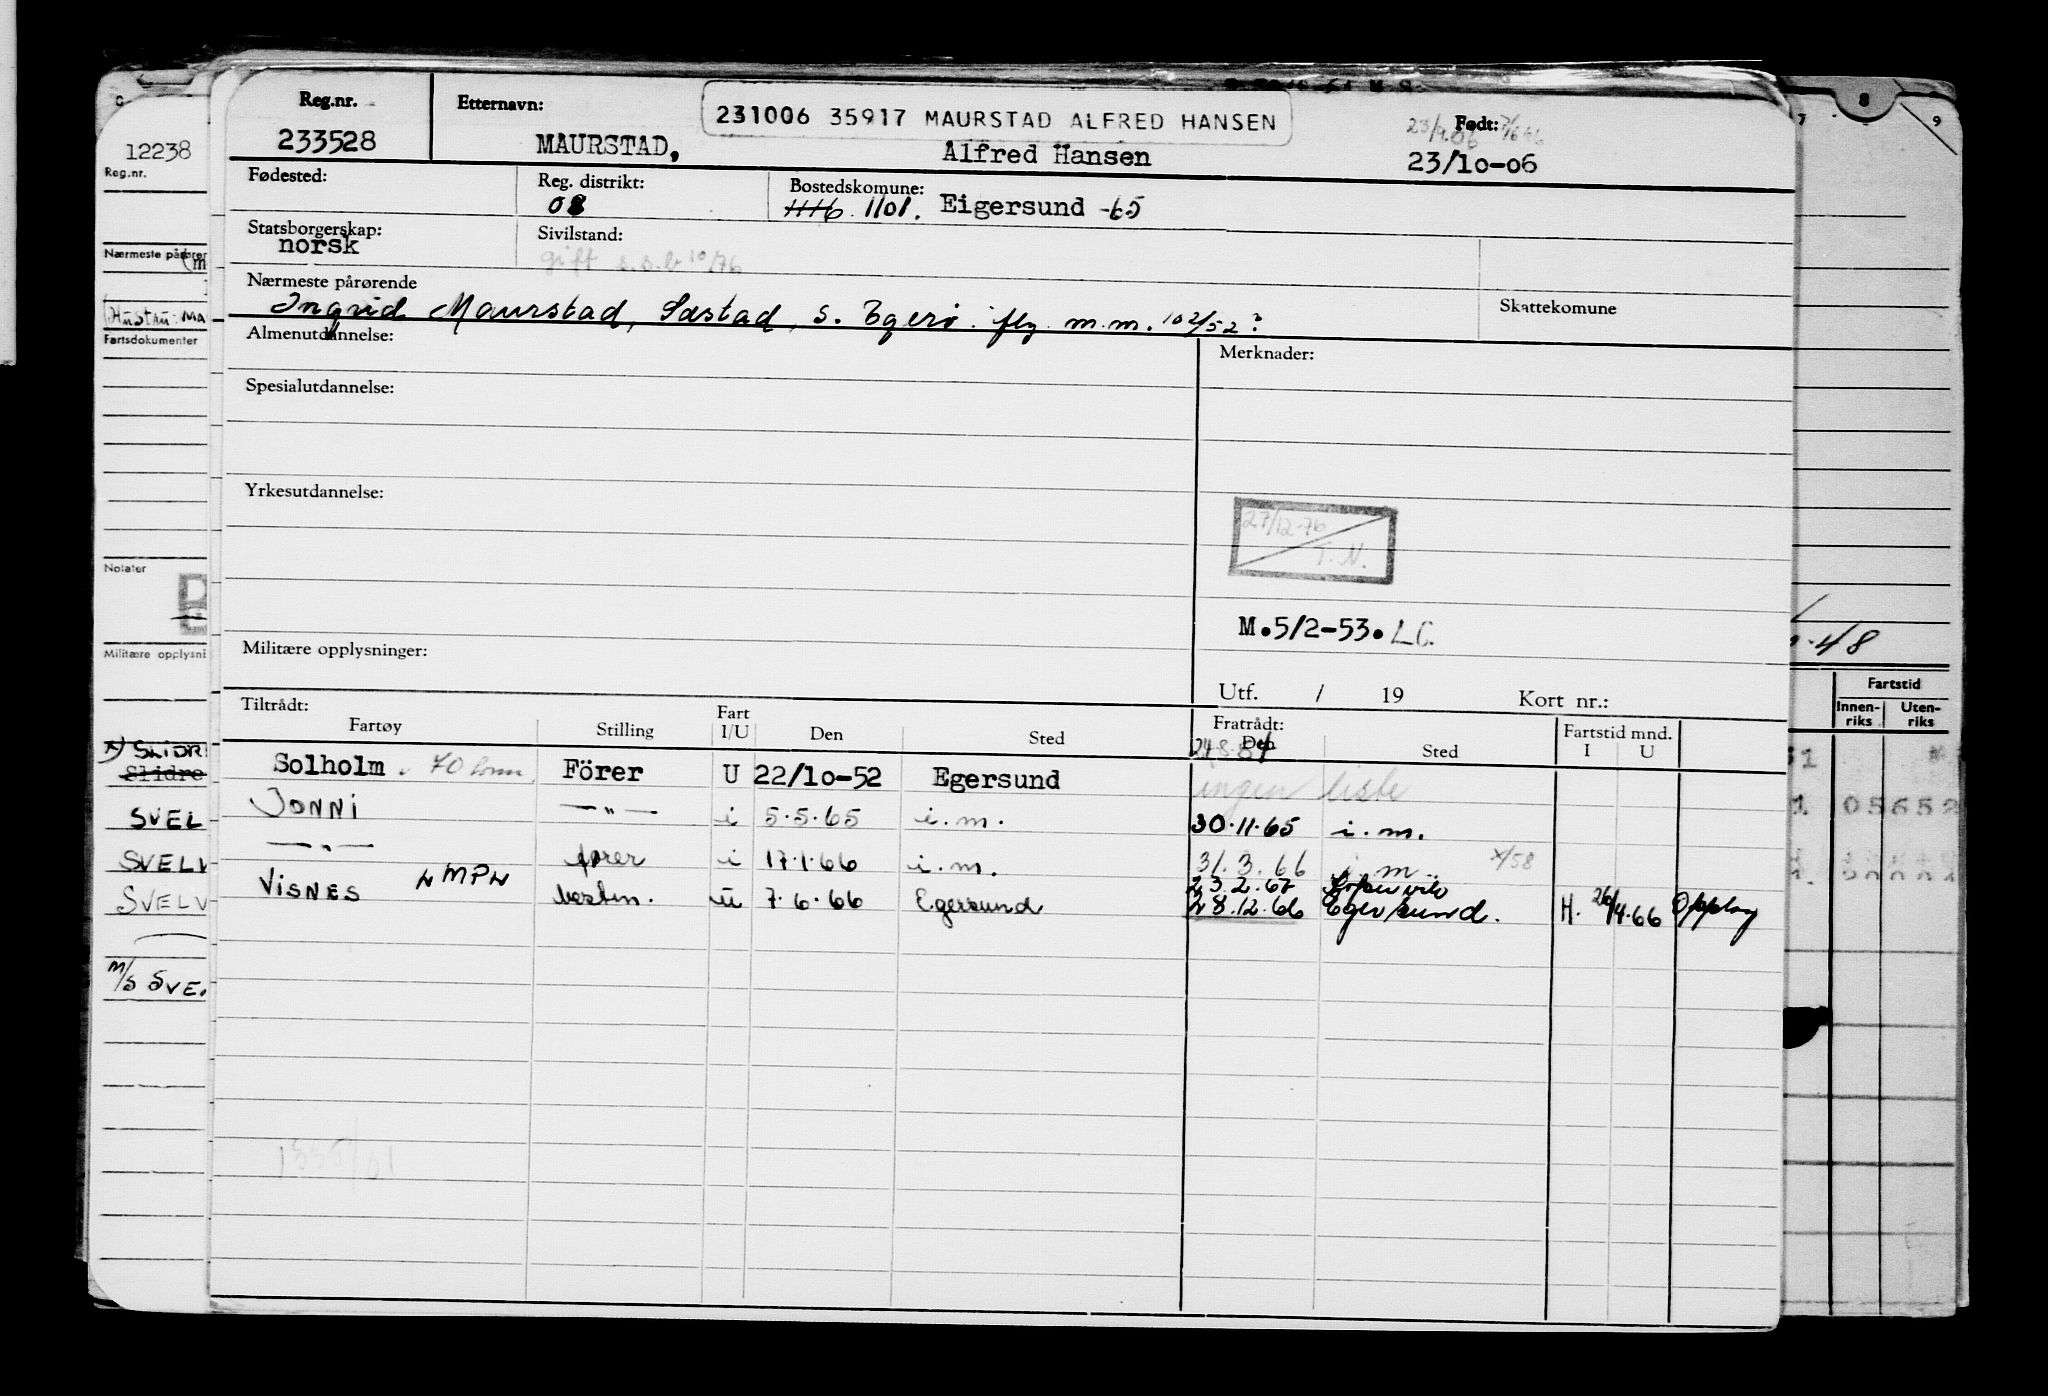 12238
Reg.nr.
Nærmeste pårører
Hustru: MA
Fartsdokumenter
Notater
Militære opplysni
SLIDR
Slidre
SVEL
SVELV
SVELV
M/S SVE
Reg.nr.
233528
Etternavn:
231006 35917 MAURSTAD ALFRED HANSEN
MAURSTAD, Alfred Hansen
Født:
23/10-06
Fødested:
Reg. distrikt:
08
Bostedskomune:
1116 1101. Eigersund -65
Statsborgerskap:
norsk
Sivilstand:
gift s.s.b 10/76
Nærmeste pårørende
Ingrid Maurstad, Sæstad, s. Egerø. flg. m.m. 102/52
Skattekomune
Almenutdannelse:
Merknader:
Spesialutdannelse:
Yrkesutdannelse:
27/12-76
T.N.
M.5/2-53. LC.
Militære opplysninger:
Utf. / 19 Kort nr.:
Tiltrådt:
Fartøy Stilling Fart I/U Den Sted
Fratrådt:
Den Sted Fartstid mnd.
I U
24.8.54
Solholm 70 tonn Förer U 22/10-52 Egersund ingen liste
JONNI —"— i 5.5.65 i.m. 30.11.65 i.m.
—"— fører i 17.1.66 i.m. 31.3.66 i.m. x/58
23.2.67
VISNES LMPL bestm. u 7.6.66 Egersund 28.12.66 Egersund. H. 26/4.66 Opplag
1335/61
7 8 9
48
Fartstid
Innen-riks Uten-riks
05652